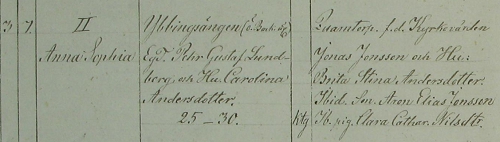 3 7. II
Anna Sophia
Ybbingsängen (Ö. Bark. 46)
Egd. Pehr Gustaf Lund-
berg och Hu. Carolina
Andersdotter.
25 – 30.
Quarntorp. f.d. Kyrkovärden
Jonas Jonsson och Hu:
Brita Stina Andersdotter.
Ibid. Sm. Aron Elias Jonsson
ktg Ib. pig. Clara Cathar. Nilsdtr.